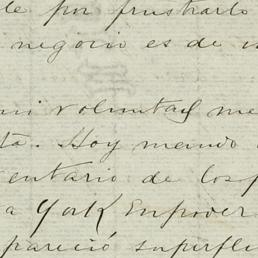 de por frustrarlo
negocio es de
mi voluntad me
ta. Hoy mando
entario de los p
a York Empoder
pareció superfl